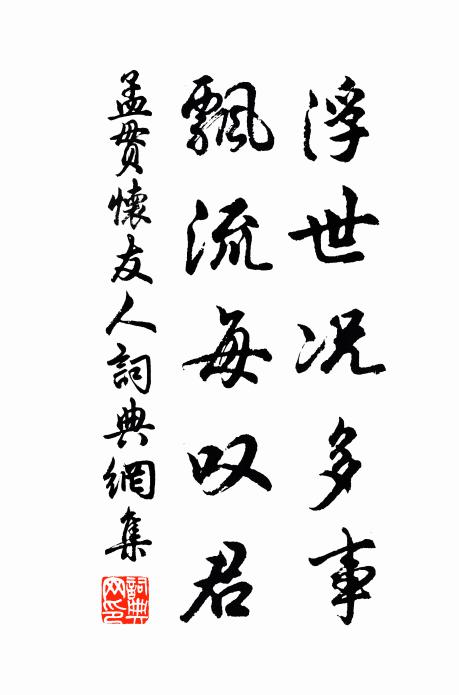 浮世况多事
飄流每叹君
孟贯懷友人詞典網集
詞典网印